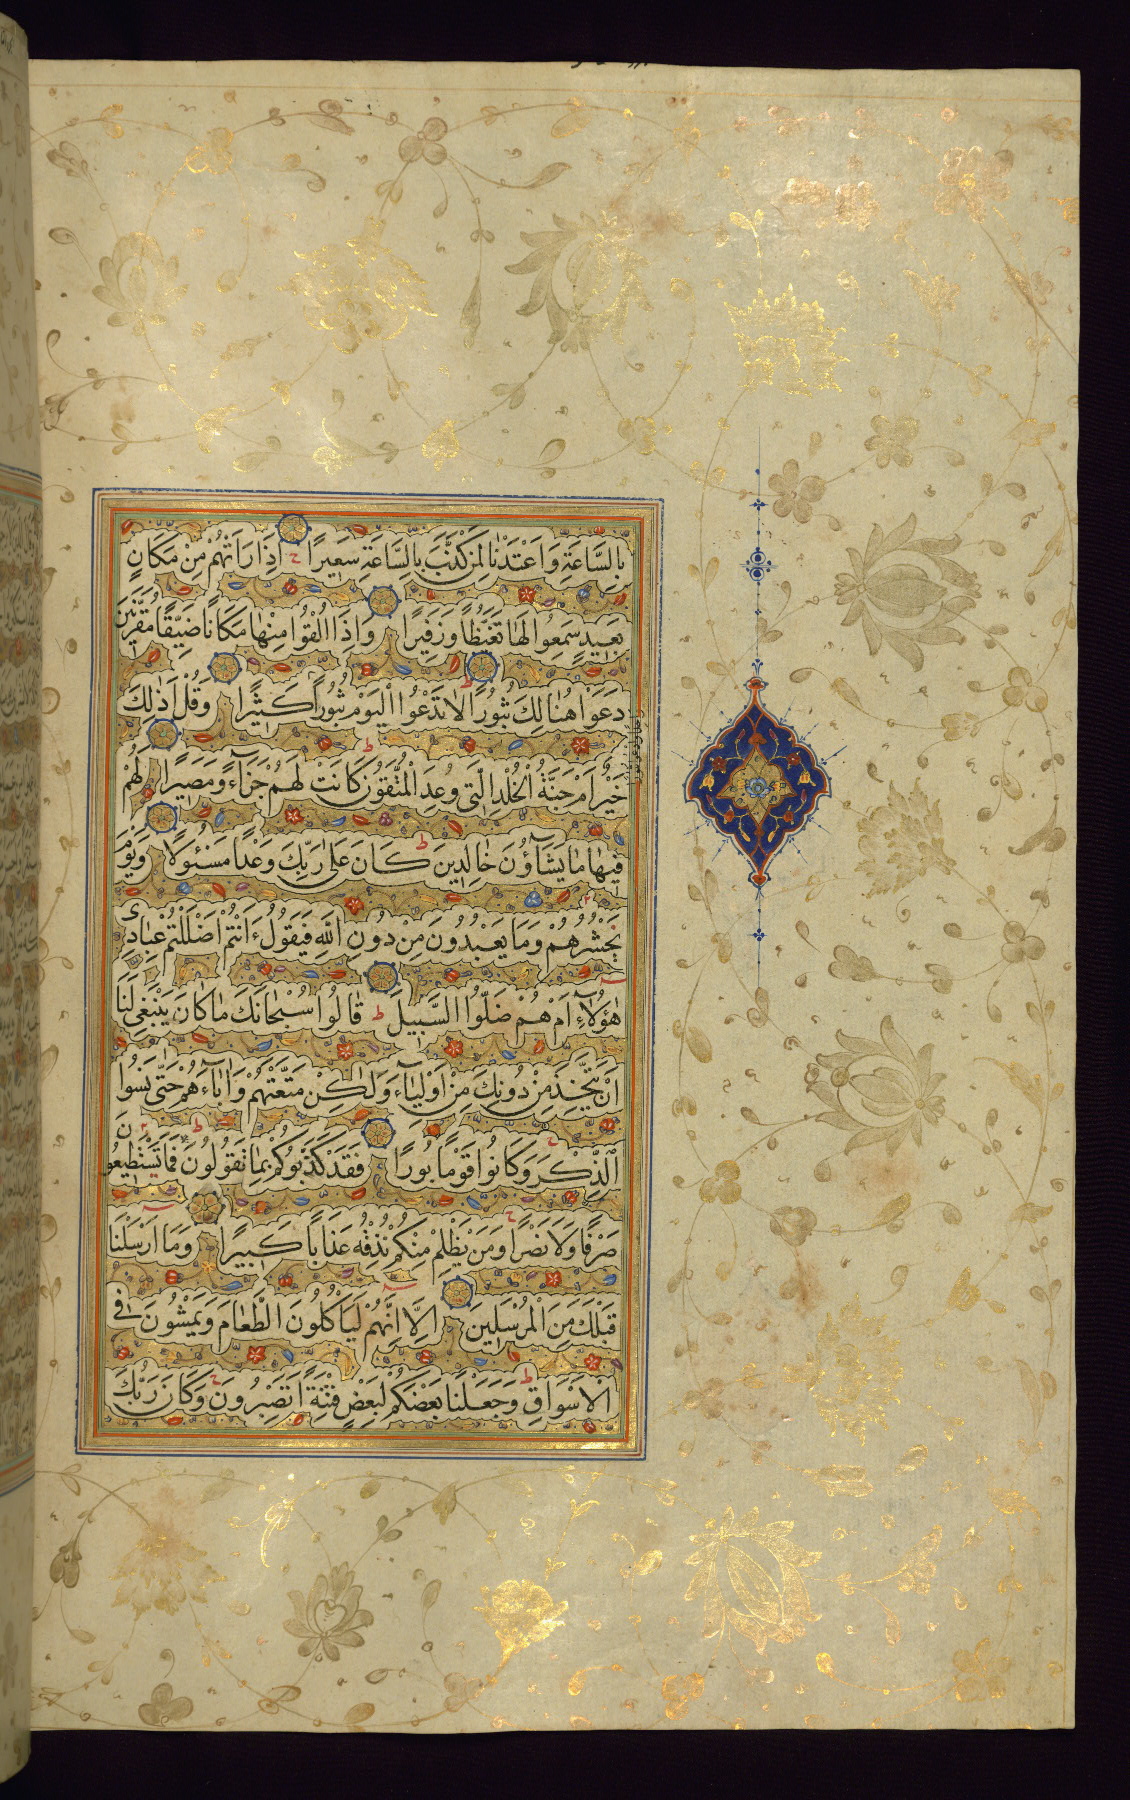 بِالسَّاعَةِ وَاَعْتَدْنَا لِمَنْ كَذَّبَ بِالسَّاعَةِ سَعِيرًا ح اِذَا رَاَتْهُمْ مِنْ مَكَانٍ
بَعِيدٍ سَمِعُوا لَهَا تَغَيُّظًا وَزَفِيرًا وَاِذَا اُلْقُوا مِنْهَا مَكَانًا ضَيِّقًا مُقَرَّنِينَ
دَعَوْا هُنَالِكَ ثُبُورًا ط لَا تَدْعُوا الْيَوْمَ ثُبُورًا كَثِيرًا وَقُلْ اَذٰلِكَ
خَيْرٌ اَمْ جَنَّةُ الْخُلْدِ الَّتِي وُعِدَ الْمُتَّقُونَ ط كَانَتْ لَهُمْ جَزَآءً وَمَصِيرًا لَهُمْ
فِيهَا مَا يَشَآؤُنَ خَالِدِينَ ط كَانَ عَلٰى رَبِّكَ وَعْدًا مَسْئُولًا وَيَوْمَ
يَحْشُرُهُمْ وَمَا يَعْبُدُونَ مِنْ دُونِ اللّٰهِ فَيَقُولُ ءَاَنْتُمْ اَضْلَلْتُمْ عِبَادِي
هٰؤُلَآءِ اَمْ هُمْ ضَلُّوا السَّبِيلَ ط قَالُوا سُبْحَانَكَ مَا كَانَ يَنْبَغِي لَنَا
اَنْ نَتَّخِذَ مِنْ دُونِكَ مِنْ اَوْلِيَآءَ وَلٰكِنْ مَتَّعْتَهُمْ وَاٰبَآءَهُمْ حَتّٰى نَسُوا
الذِّكْرَ ج وَكَانُوا قَوْمًا بُورًا فَقَدْ كَذَّبُوكُمْ بِمَا تَقُولُونَ فَمَا تَسْتَطِيعُونَ
صَرْفًا وَلَا نَصْرًا ج وَمَنْ يَظْلِمْ مِنْكُمْ نُذِقْهُ عَذَابًا كَبِيرًا وَمَا اَرْسَلْنَا
قَبْلَكَ مِنَ الْمُرْسَلِينَ اِلَّا اِنَّهُمْ لَيَأْكُلُونَ الطَّعَامَ وَيَمْشُونَ فِي
الْاَسْوَاقِ ط وَجَعَلْنَا بَعْضَكُمْ لِبَعْضٍ فِتْنَةً اَتَصْبِرُونَ ج وَكَانَ رَبُّكَ